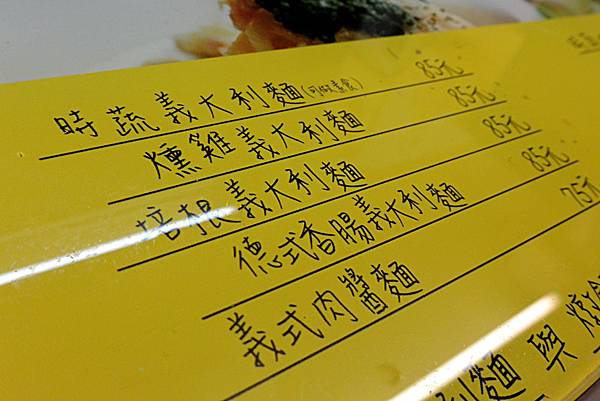 時蔬義大利麵(可做素食) 85元
燻雞義大利麵 85元
培根義大利麵 85元
德式香腸義大利麵 85元
義式肉醬麵 75元
利麵 與